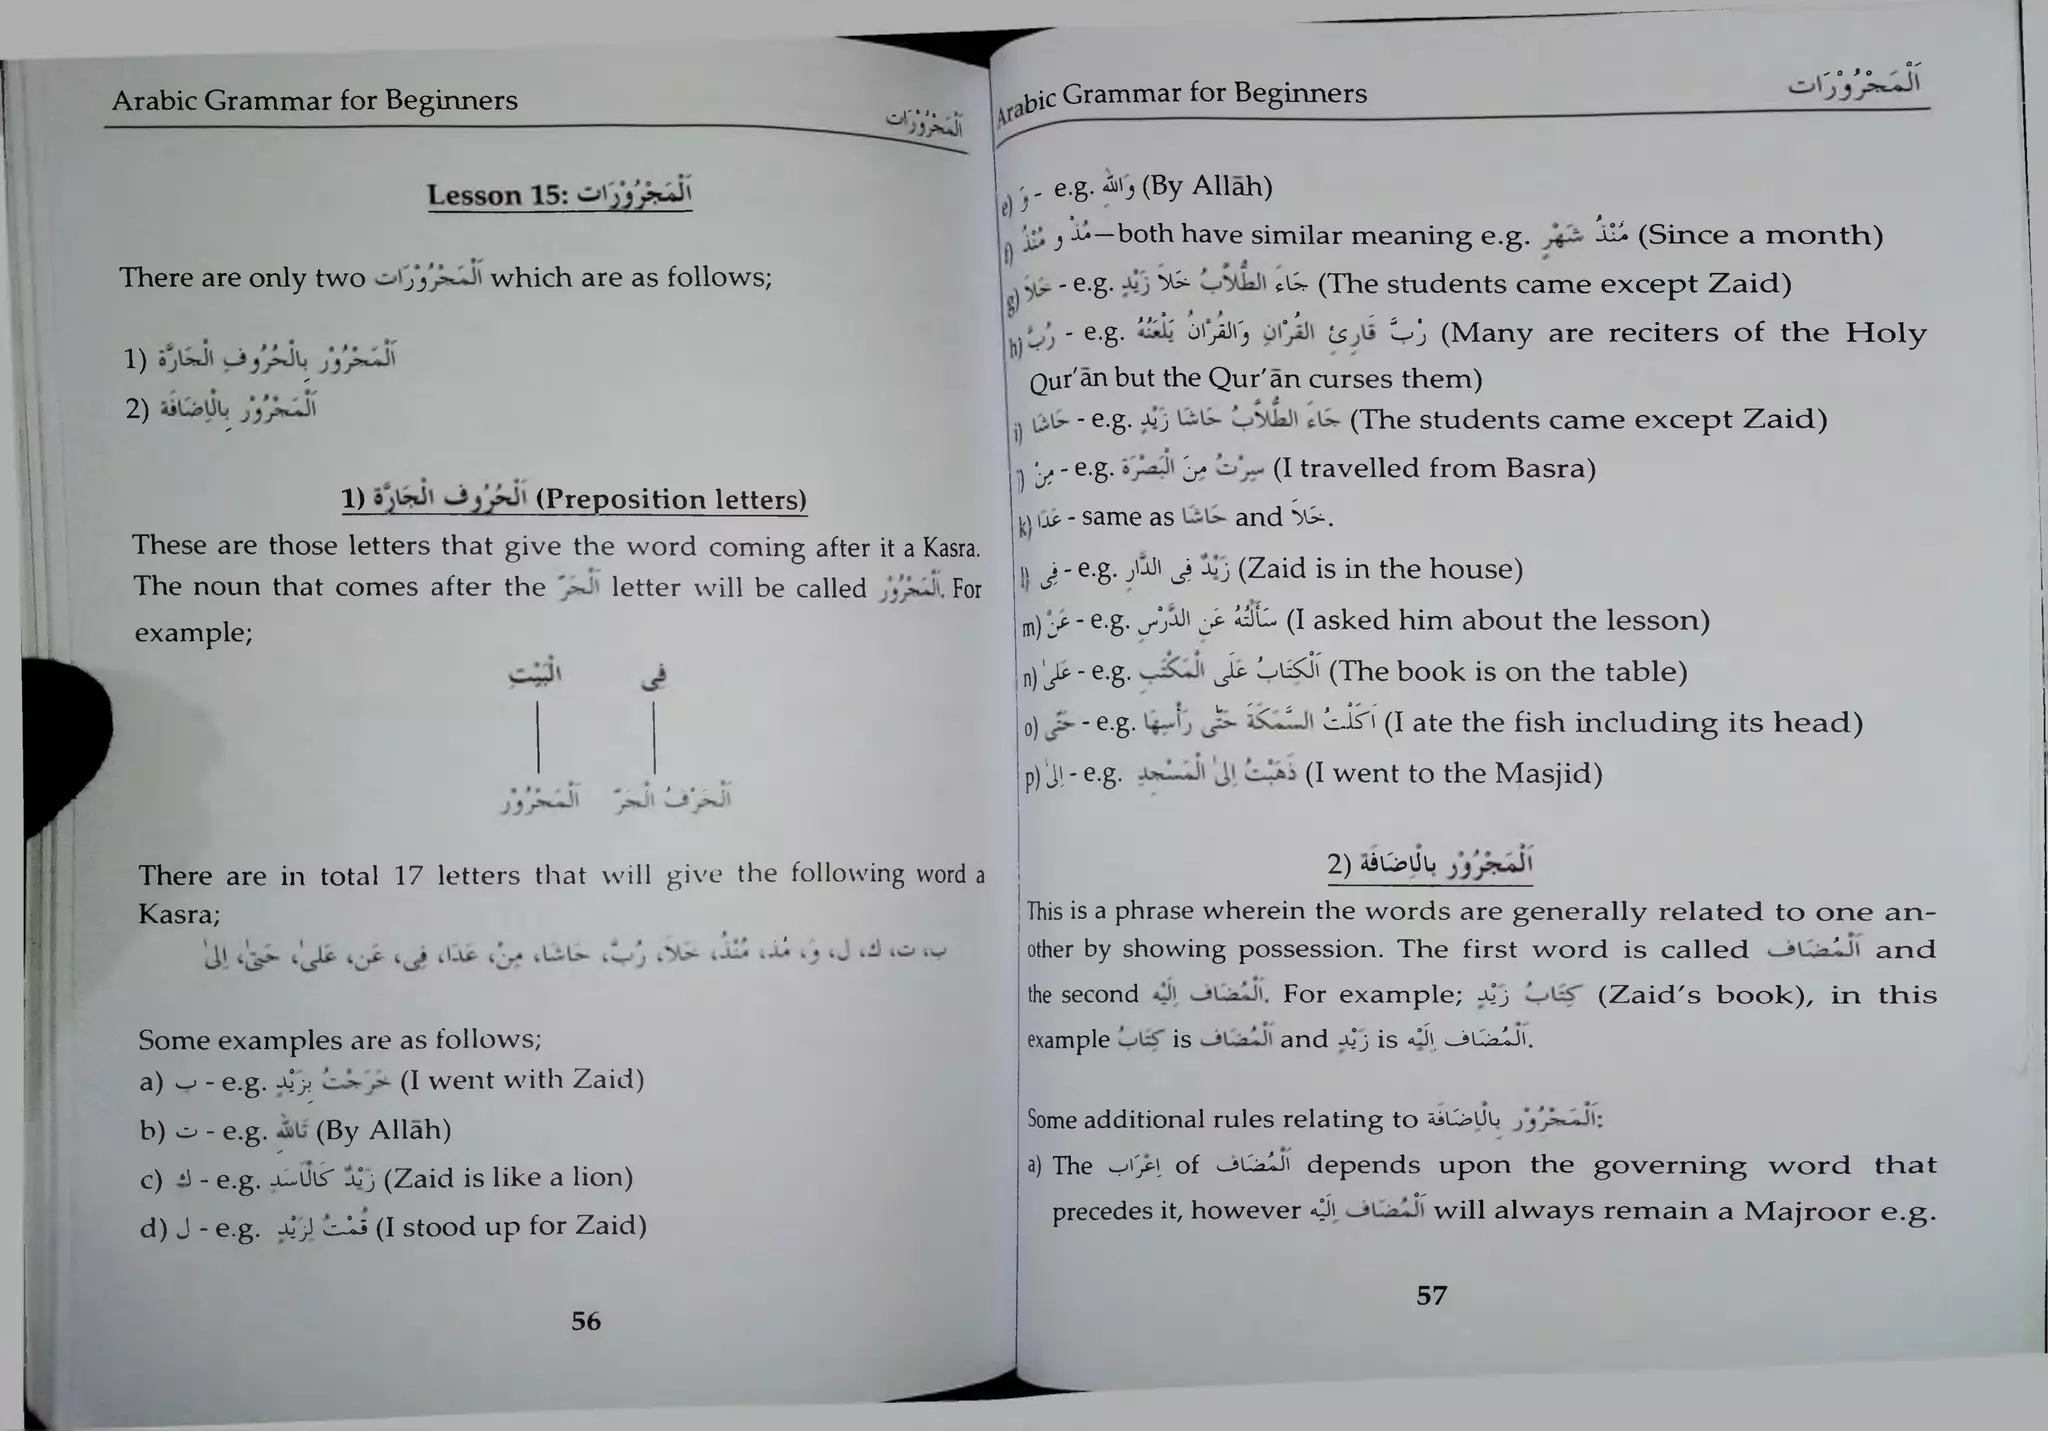 Arabic Grammar for Beginners
اَلْمَجْرُوْرَات
Lesson 15: اَلْمَجْرُوْرَات
There are only two اَلْمَجْرُوْرَات which are as follows;
1) اَلْمَجْرُوْر بِالْحُرُوفِ الْجَارَّة
2) اَلْمَجْرُوْر بِالْاِضَافَة
1) اَلْحُرُوف الْجَارَّة (Preposition letters)
These are those letters that give the word coming after it a Kasra.
The noun that comes after the اَلْجَرّ letter will be called اَلْمَجْرُوْر. For
example;
فِى الْبَيْتِ
اَلْحَرْفُ الْجَرّ اَلْمَجْرُوْر
There are in total 17 letters that will give the following word a
Kasra;
ب، ت، ك، ل، وَ، مُذ، مُنْذُ، خَلاَ، رُبَّ، حَاشَا، مِنْ، عَدَا، فِى، عَن، عَلىٰ، حَتىّٰ، اِلىٰ
Some examples are as follows;
a) ب - e.g. خَرَجْتُ بِزَيْدٍ (I went with Zaid)
b) ت - e.g. تَاللهِ (By Allāh)
c) ك - e.g. زَيْدٌ كَالْاَسَدِ (Zaid is like a lion)
d) ل - e.g. قُمْتُ لِزَيْدٍ (I stood up for Zaid)
56
Arabic Grammar for Beginners
اَلْمَجْرُوْرَات
e) وَ - e.g. وَاللهِ (By Allāh)
f) مُذْ و مُنْذُ—both have similar meaning e.g. مُنْذُ شَهْرٍ (Since a month)
g) خَلاَ - e.g. جَاءَ الطُّلاَّبُ خَلاَ زَيْدٍ (The students came except Zaid)
h) رُبَّ - e.g. رُبَّ قَارِئِ القُرْاٰنِ وَالقُرْاٰنُ يَلْعَنُهُ (Many are reciters of the Holy
Qur'ān but the Qur'ān curses them)
i) حَاشَا - e.g. جَاءَ الطُّلاَّبُ حَاشَا زَيْدٍ (The students came except Zaid)
j) مِنْ - e.g. سِرْتُ مِنَ الْبَصْرَةِ (I travelled from Basra)
k) عَدَا - same as حَاشَا and خَلاَ.
l) فِى - e.g. زَيْدٌ فِى الدَّارِ (Zaid is in the house)
m) عَنْ - e.g. سَأَلْتُهُ عَنِ الدَّرْسِ (I asked him about the lesson)
n) عَلىٰ - e.g. اَلْكِتَابُ عَلَى الْمَكْتَبِ (The book is on the table)
o) حَتّٰى - e.g. اَكَلْتُ السَّمَكَةَ حَتّٰى رَأْسِهَا (I ate the fish including its head)
p) اِلىٰ - e.g. ذَهَبْتُ اِلىٰ الْمَسْجِدِ (I went to the Masjid)
2) اَلْمَجْرُوْر بِالْاِضَافَة
This is a phrase wherein the words are generally related to one an-
other by showing possession. The first word is called اَلْمُضَاف and
the second اَلْمُضَاف اِلَيْه. For example; كِتَابُ زَيْدٍ (Zaid's book), in this
example كِتَابُ is اَلْمُضَاف and زَيْدٍ is اَلْمُضَاف اِلَيْه.
Some additional rules relating to اَلْمَجْرُوْر بِالْاِضَافَة:
a) The اِعْرَاب of اَلْمُضَاف depends upon the governing word that
precedes it, however اَلْمُضَاف اِلَيْه will always remain a Majroor e.g.
57